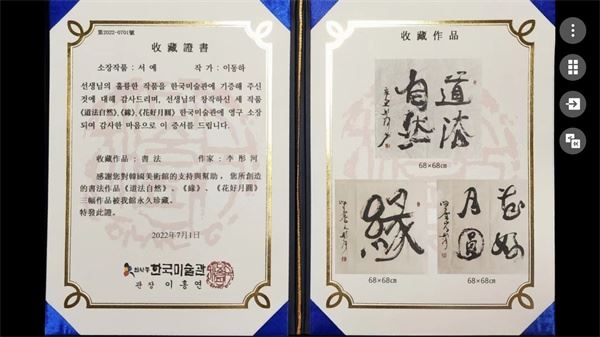 第2022-0701號
收藏證書
소장작품 : 서예 작 가 : 이동하
선생님의 훌륭한 작품을 한국미술관에 기증해 주신
것에 대해 감사드리며, 선생님의 창작하신 세 작품
《道法自然》、《緣》、《花好月圓》 한국미술관에 영구 소장
되어 감사한 마음으로 이 증서를 드립니다.
收藏作品 : 書法 作家 : 李彤河
感謝您對韓國美術館的支持與幫助， 您所創造
的書法作品《道法自然》、《緣》、《花好月圓》
三幅作品被我館永久珍藏。
特發此證。
2022年7月1日
한국미술관
관장 이홍연
收藏作品
道法
自然
68×68㎝
緣
68×68㎝
花好
月圓
68×68㎝